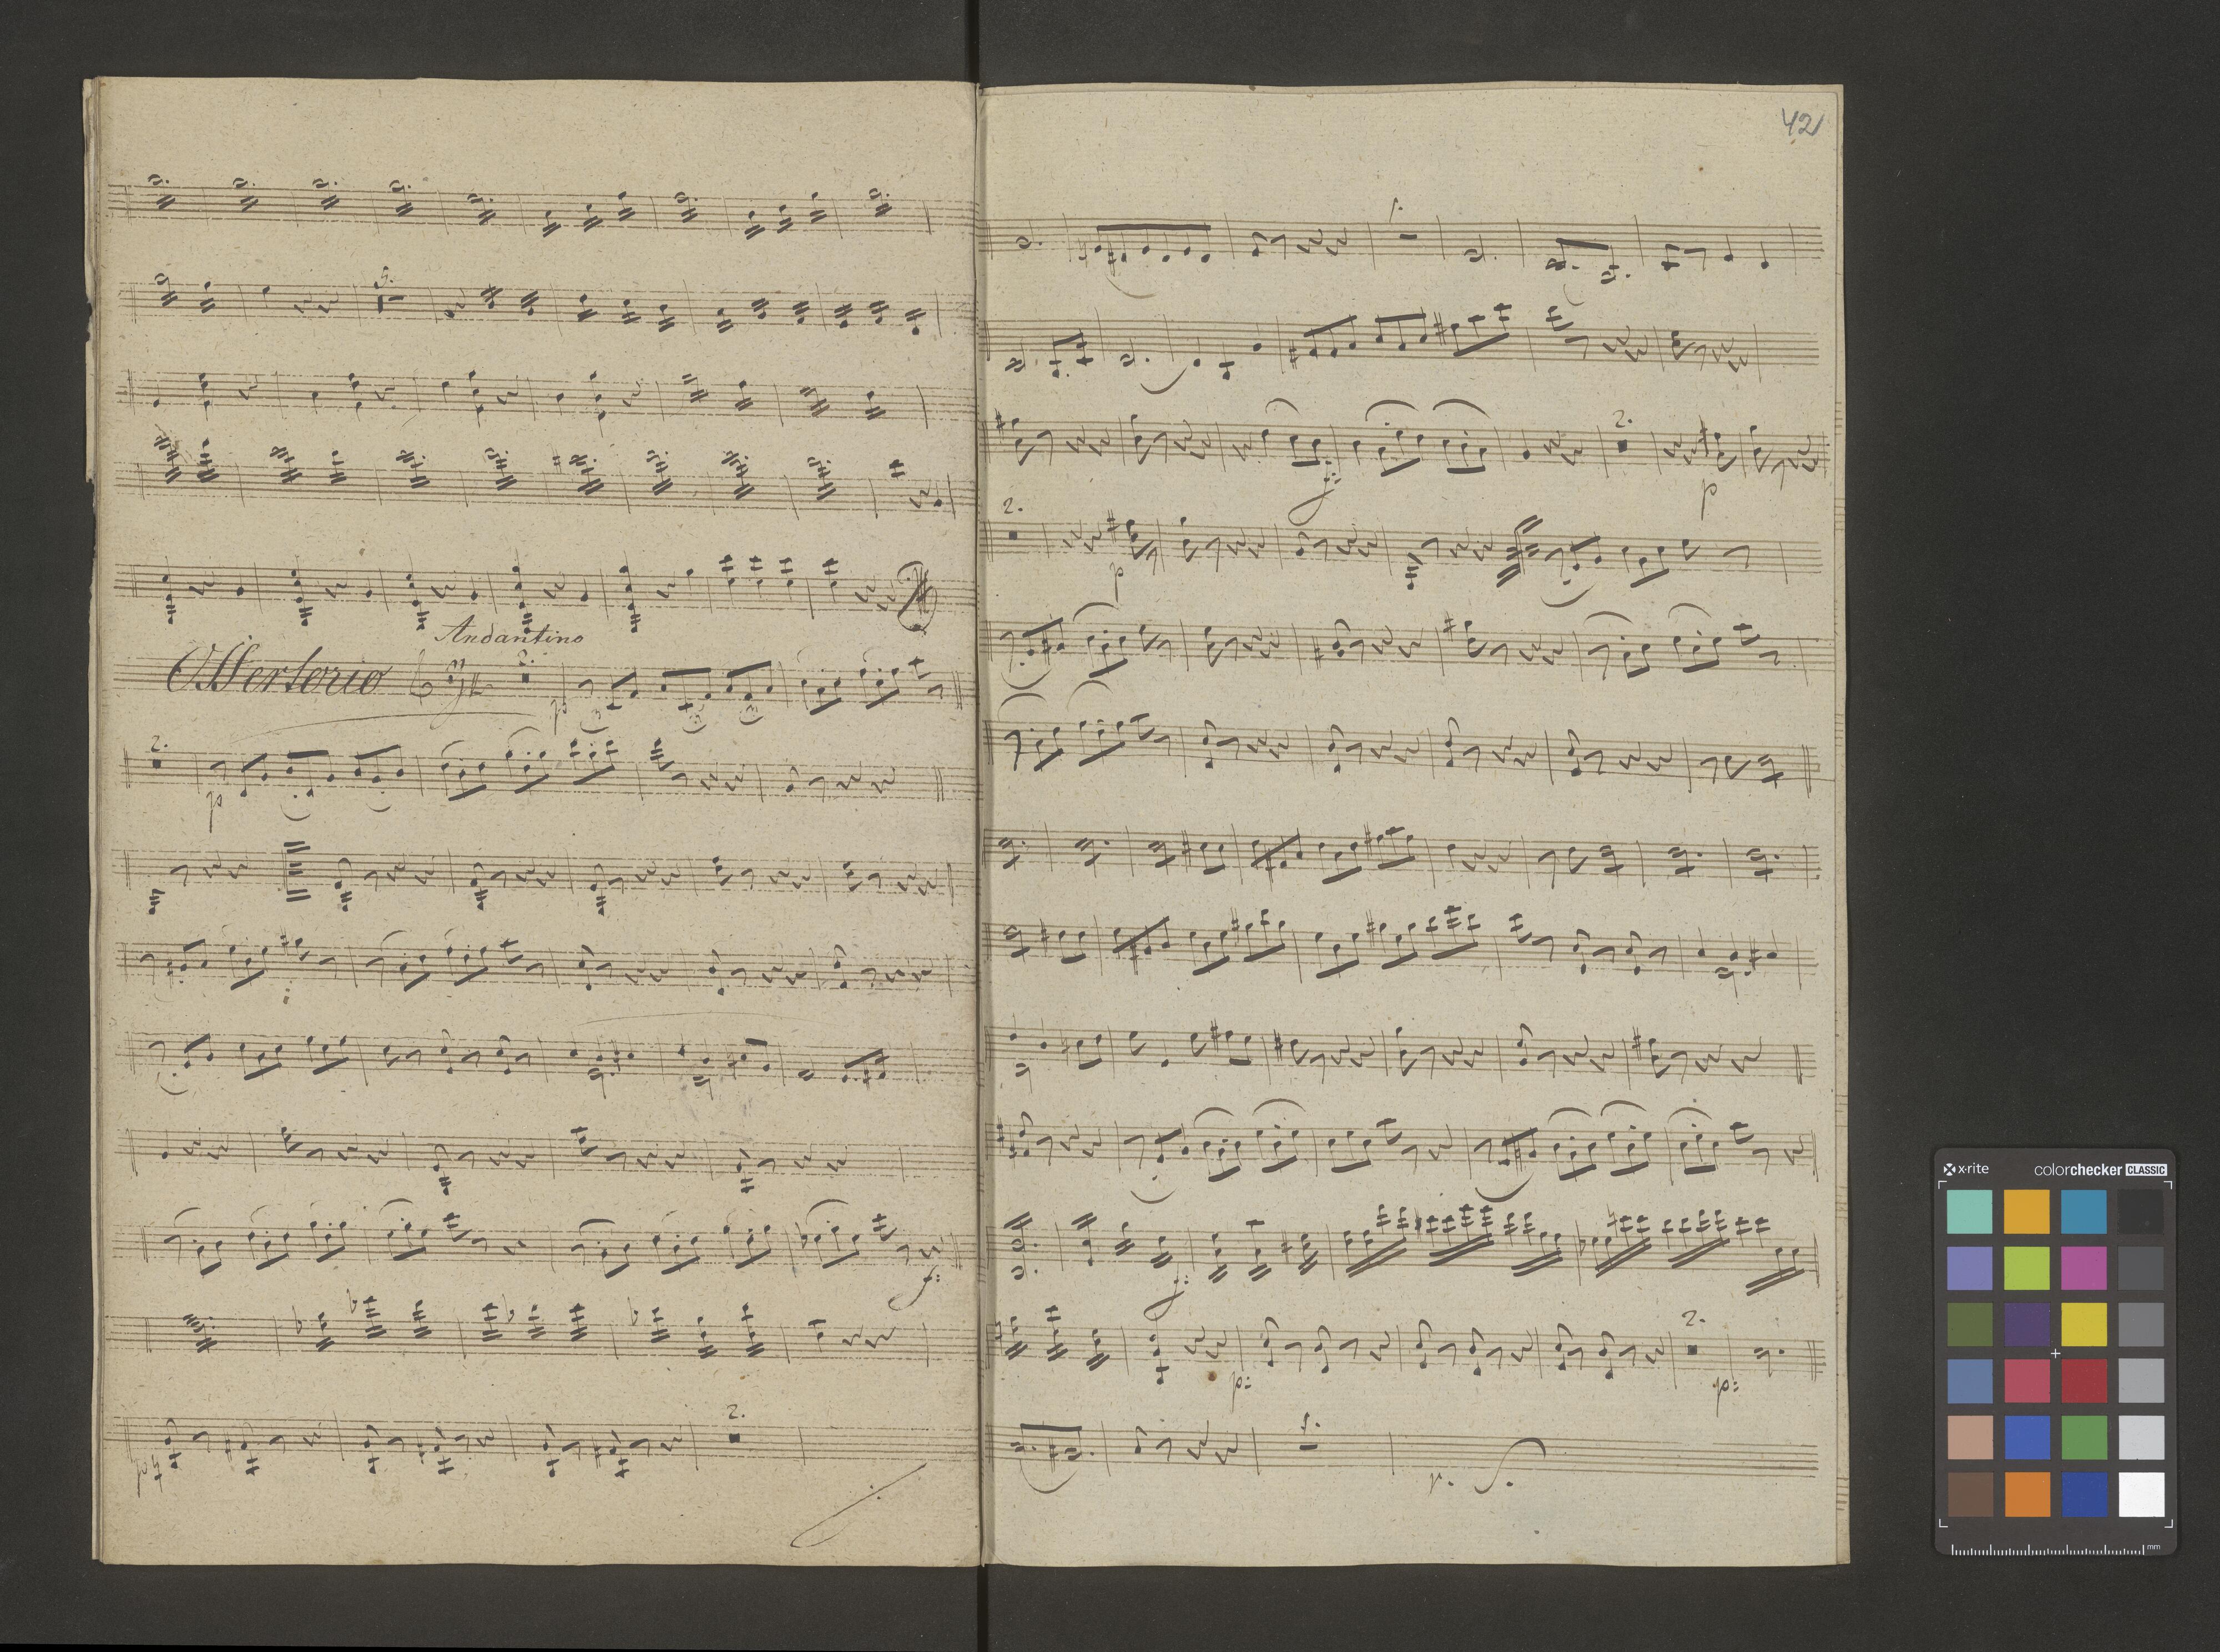 42
5.
Andantino
Offertorio 2.
p
2.
p
f:
p
2.
1.
2.
f:
p
2.
p
f:
2.
p: p:
1.
v. S.
x-rite colorchecker CLASSIC
mm